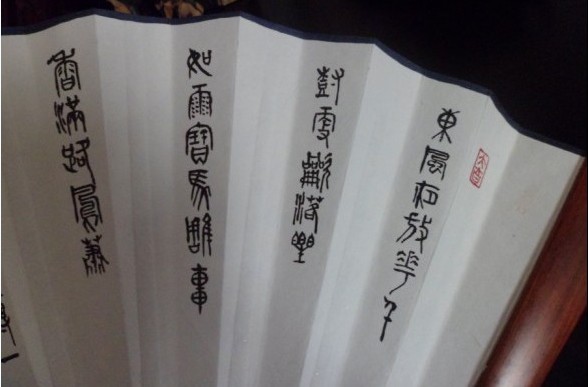 東風夜放花千
尌更龡落星
如雨寶馬雕車
香滿路鳳蕭